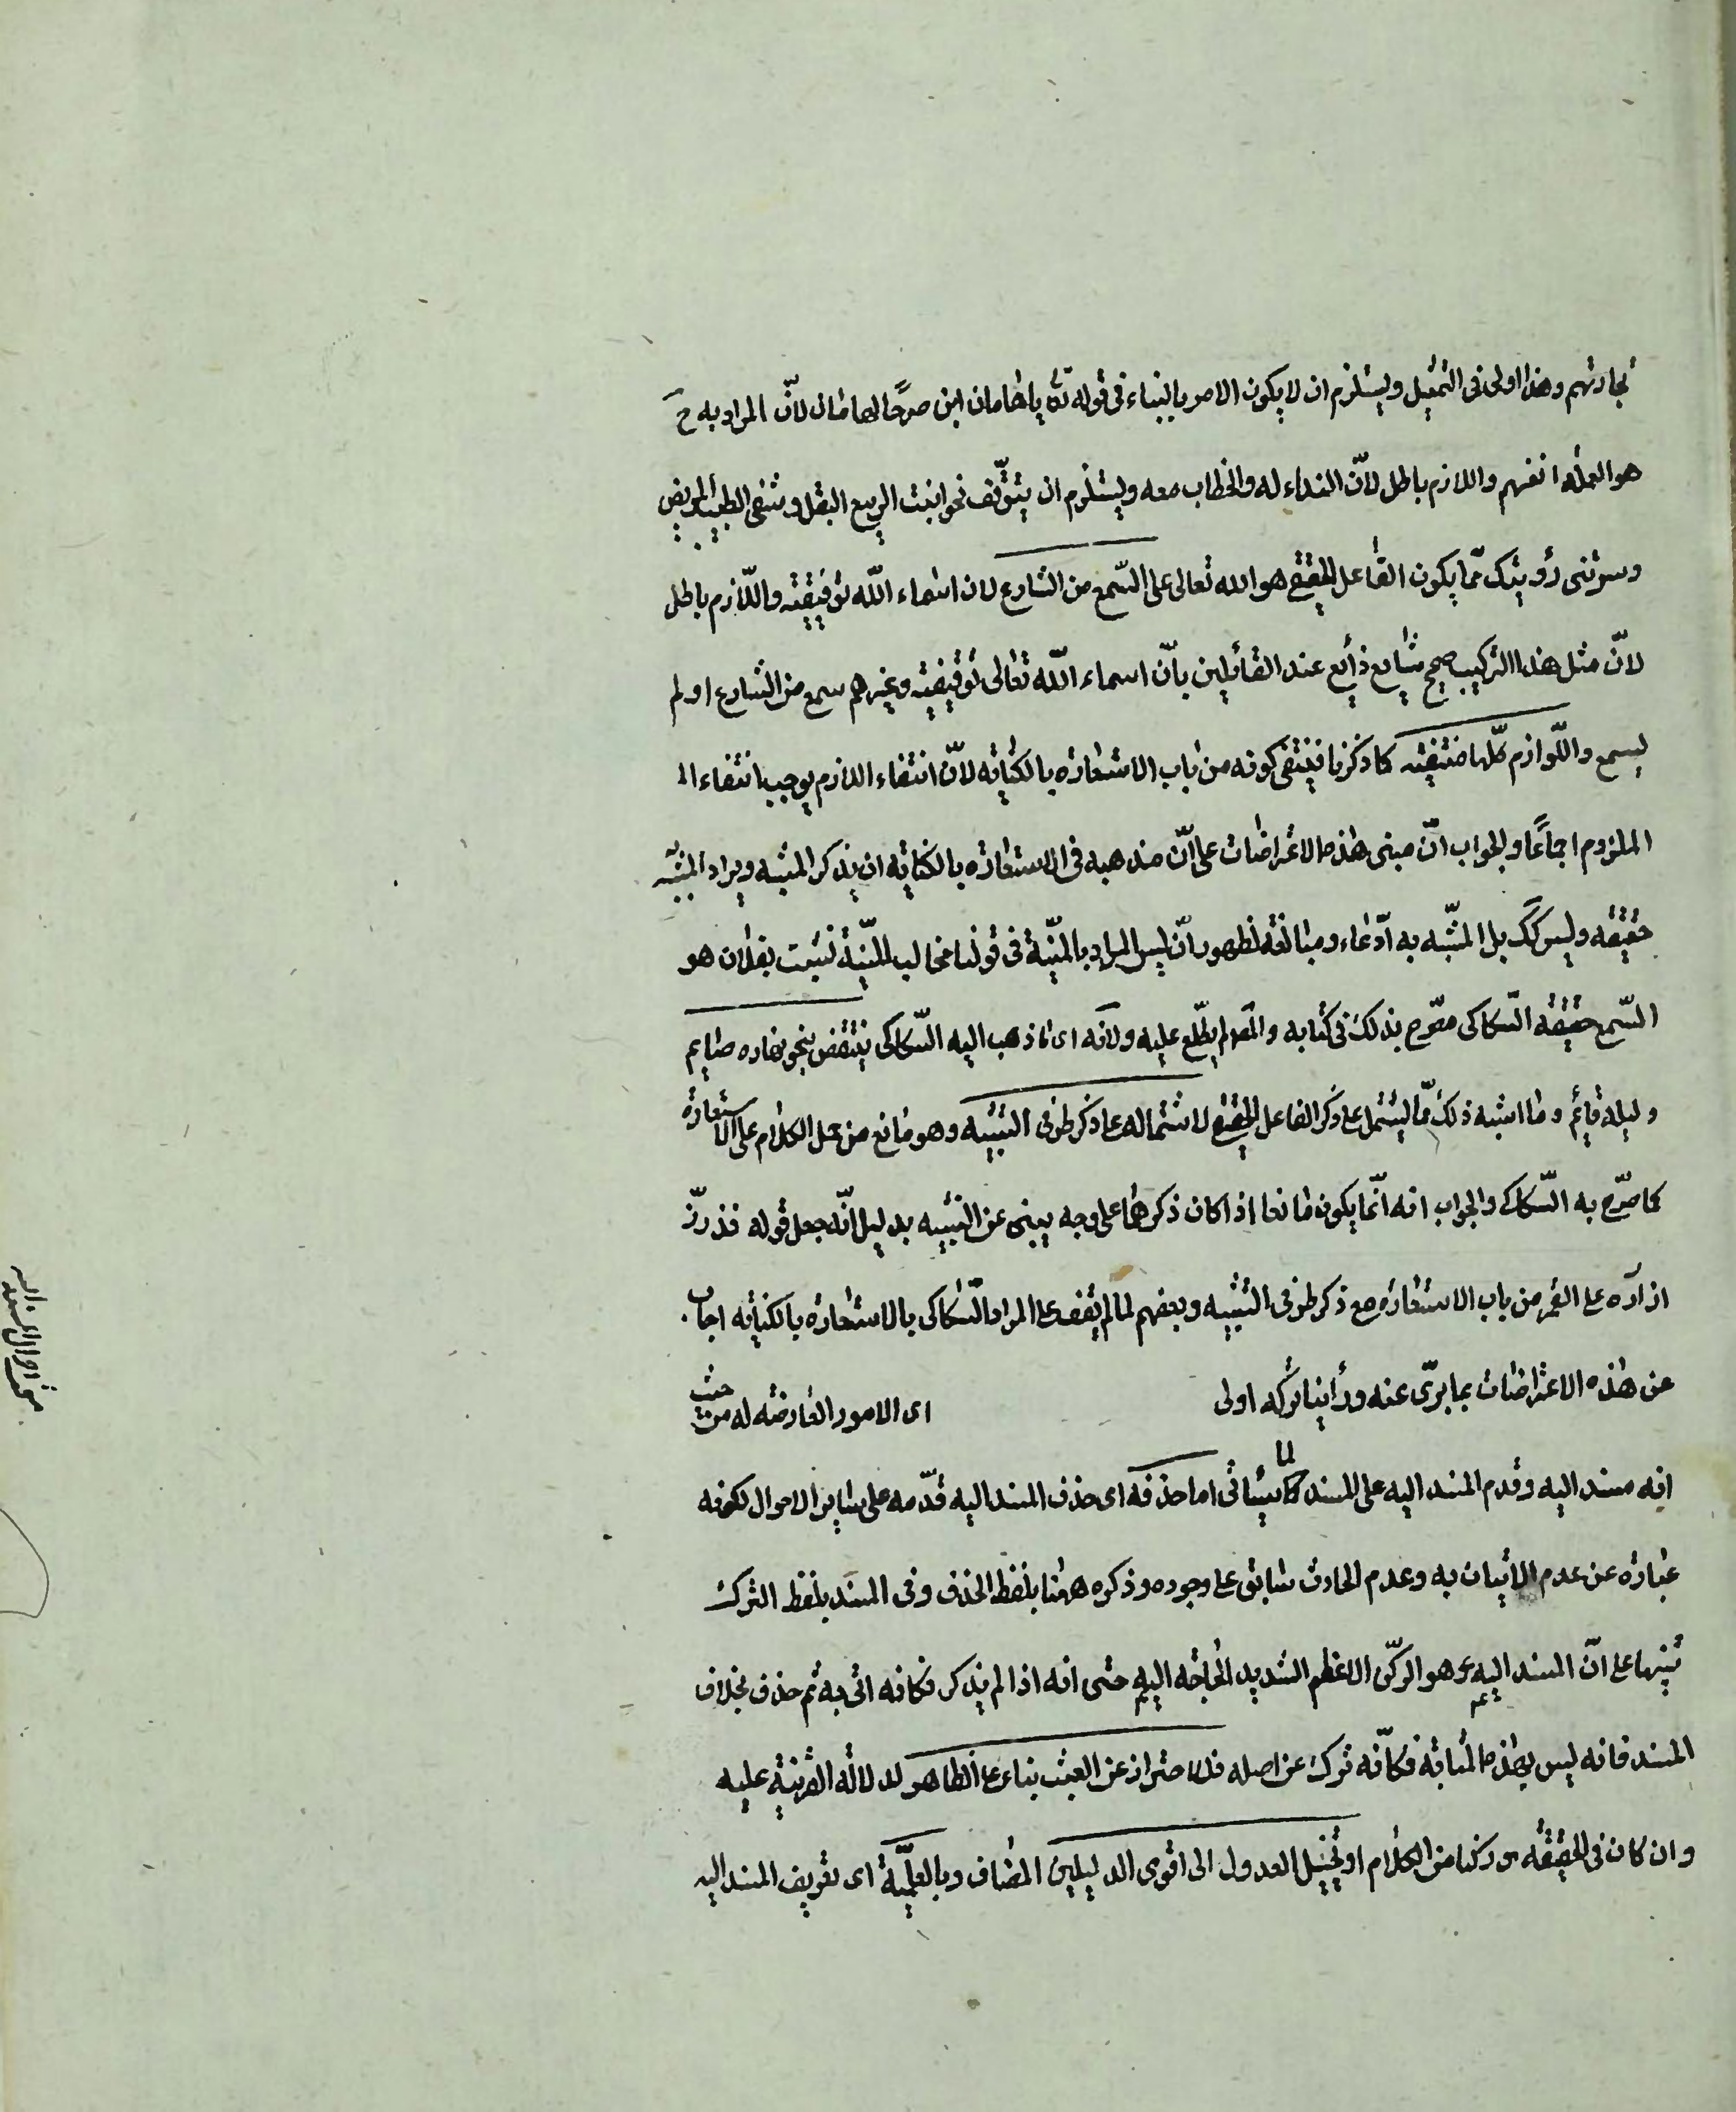 تجارتهم وهذا اولى فى التمثيل ويستلزم ان لا يكون الامر بالبناء فى قوله تع يا هامان ابن صرحًا لهامان لانّ المراد به ح
هو العملة انفسهم واللازم باطل لانّ النداء له والخطاب معه ويستلزم ان يتوقّف نحو انبت الربيع البقل وشفى الطبيب المريض
وسرتنى رؤيتك ممّا يكون الفاعل الحقيقى هو الله تعالى على السّمع من الشارع لان اسماء اللّه توقيفيّة واللّازم باطل
لانّ مثل هذا التركيب صحيح شايع ذايع عند القائلين بانّ اسماء اللّه تعالى توقيفية وغيرهم سمع من الشارع او لم
يسمع واللّوازم كلّها منتفية كما ذكرنا فينتفى كونه من باب الاستعارة بالكناية لانّ انتفاء اللازم يوجب انتفاء الـ
الملزوم اجماعًا والجواب انّ مبنى هذه الاعتراضات على انّ مذهبه فى الاستعارة بالكناية ان يذكر المشبه ويراد المشبّه به
حقيقة وليس كك بل المشبّه به ادّعاء ومبالغة لظهور ان ليس المراد بالمنيّة فى قولنا مخالب المنيّة نشبت بفلان هو
السّبع حقيقة السّكاكى مصّرح بذلك فى كتابه والمص لم يطّلع عليه ولانه اى ما ذهب اليه السّكاكى ينتقض بنحو نهاره صايم
وليله قايم وما اشبه ذلك ممّا يشتمل على ذكر الفاعل الحقيقى لاشتماله على ذكر طرفى التشبيه وهو مانع من حمل الكلام على الاستعارة
كما صرّح به السّكاكى والجواب انه انّما يكون مانعا اذا كان ذكرهما على وجه ينبى عن التشبيه بدليل انّه جعل قوله قد زرّ
ازراره على القمر من باب الاستعارة مع ذكر طرفى التشبيه وبعضهم لما لم يقف على المراد السّكاكى بالاستعارة بالكناية اجاب
عن هذه الاعتراضات بما برّى عنه وراينا تركه اولى اى الامور العارضة له من حيث
انه مسند اليه وقدم المسند اليه على المسند لما سيأتى اما حذفه اى حذف المسند اليه قدّمه على ساير الاحوال لكونه
عبارة عن عدم الاتيان به وعدم الحادث سابق على وجوده وذكره ههنا بلفظ الحذف وفى المسند بلفظ الترك
تنبيها على انّ المسند اليه هو الركن الاعظم الشديد الحاجة اليه حتى انه اذا لم يذكر فكانه اتى به ثم حذف بخلاف
المسند فانه ليس بهذه المثابة فكانّه ترك عن اصله فللاحتراز عن العبث بناء على الظاهر لدلالة القرينة عليه
وان كان فى الحقيقة ركنا من الكلام او تخييل العدول الى اقوى الدليلين المضاف وبالعلميّة اى تعريف المسند اليه